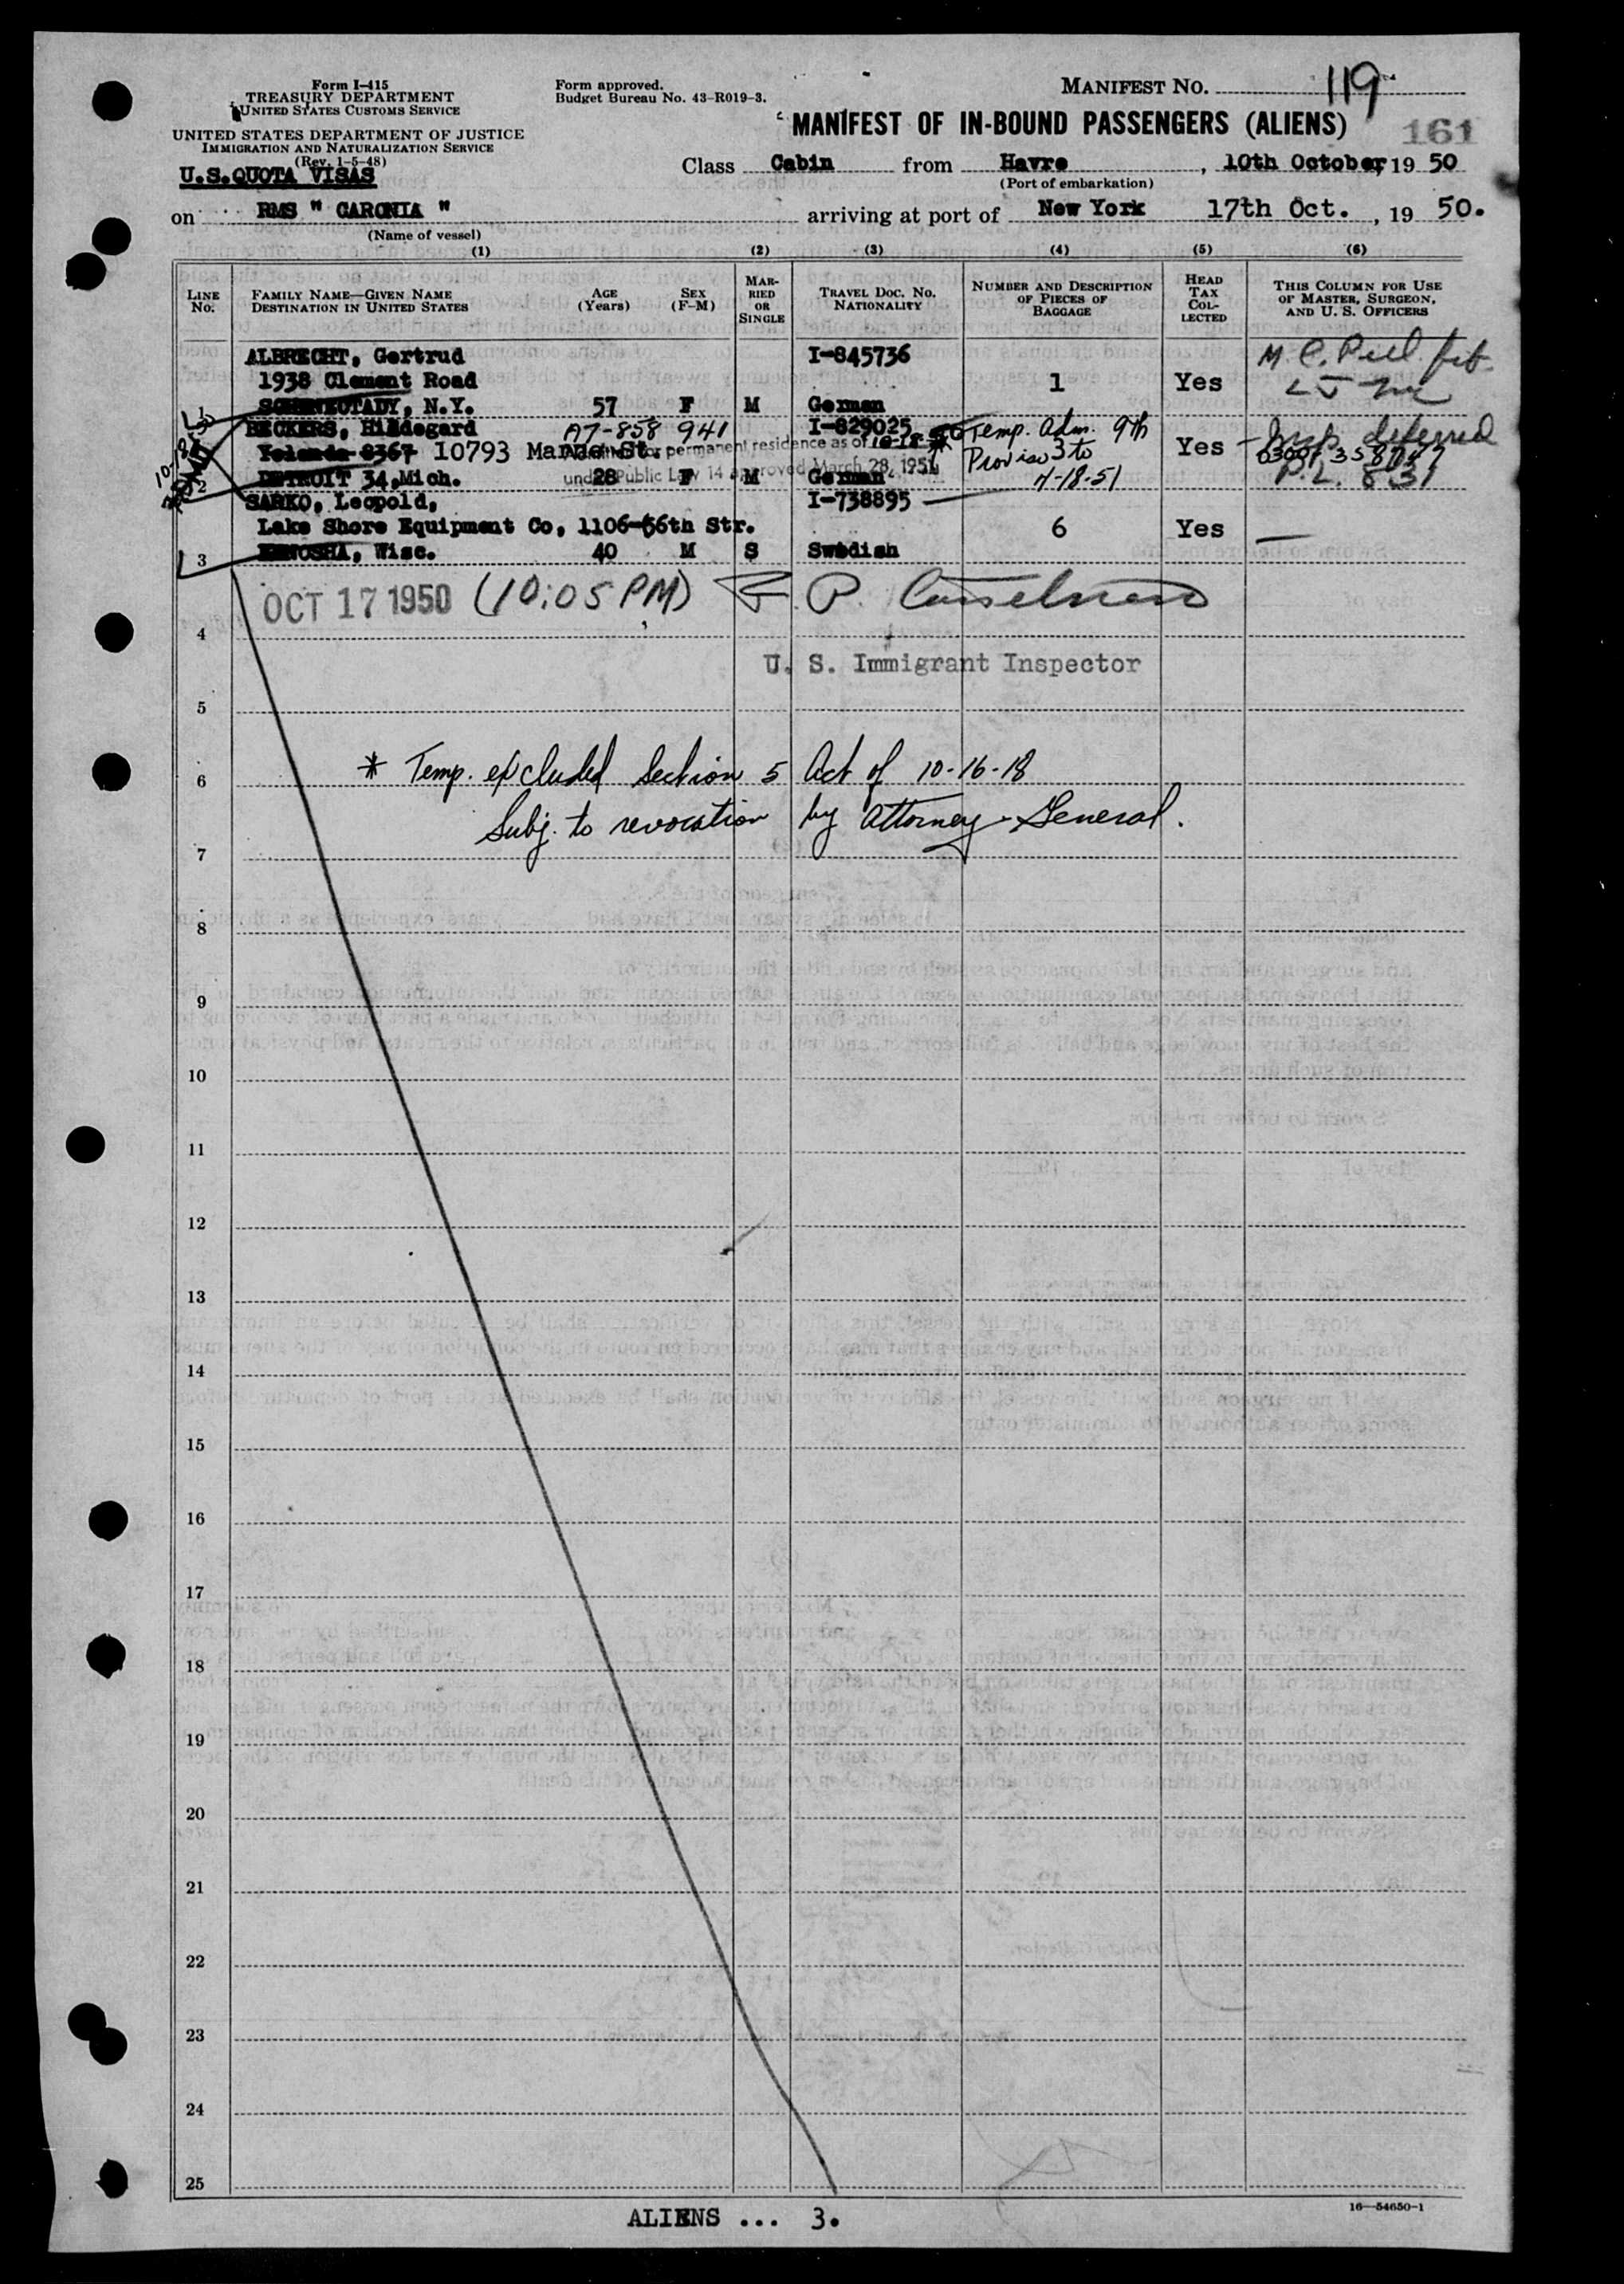 Form I-415
TREASURY DEPARTMENT
UNITED STATES CUSTOMS SERVICE
UNITED STATES DEPARTMENT OF JUSTICE
IMMIGRATION AND NATURALIZATION SERVICE
(Rev. 1-5-48)
U.S.QUOTA VISAS
Form approved.
Budget Bureau No. 43-R019-3.
MANIFEST NO. 119
MANIFEST OF IN-BOUND PASSENGERS (ALIENS) 161
Class Cabin from Havre, 10th October, 19 50
(Port of embarkation)
on RMS " CARONIA " arriving at port of New York 17th Oct., 19 50.
(Name of vessel)
(1) (2) (3) (4) (5) (6)
LINE NO.
FAMILY NAME—GIVEN NAME
DESTINATION IN UNITED STATES
AGE (Years)
SEX (F-M)
MARRIED OR SINGLE
TRAVEL DOC. NO.
NATIONALITY
NUMBER AND DESCRIPTION OF PIECES OF BAGGAGE
HEAD TAX COLLECTED
THIS COLUMN FOR USE OF MASTER, SURGEON, AND U. S. OFFICERS
ALBRECHT, Gertrud I-845736
1938 Clement Road 1 Yes
1 SCHENECTADY, N.Y. 57 F M German
BECKERS, Hildegard A7-858 941 I-829025 Temp. Adm. 9th
Yolanda 8367 10793 Marne St. permanent residence as of 10-18-50 Proviso 3 to Yes deferred
under Public Law 14 approved March 28, 1951
2 DETROIT 34, Mich. 28 F M German 4-18-51 P.L. 831
SARKO, Leopold, I-738895
Lake Shore Equipment Co, 1106-56th Str. 6 Yes
3 KENOSHA, Wisc. 40 M S Swedish
OCT 17 1950 (10:05 PM)
4
U. S. Immigrant Inspector
5
6 * Temp. excluded Section 5 Act of 10-16-18
Subj. to revocation by Attorney General.
7
8
9
10
11
12
13
14
15
16
17
18
19
20
21
22
23
24
25
16—54650-1
ALIENS ... 3.